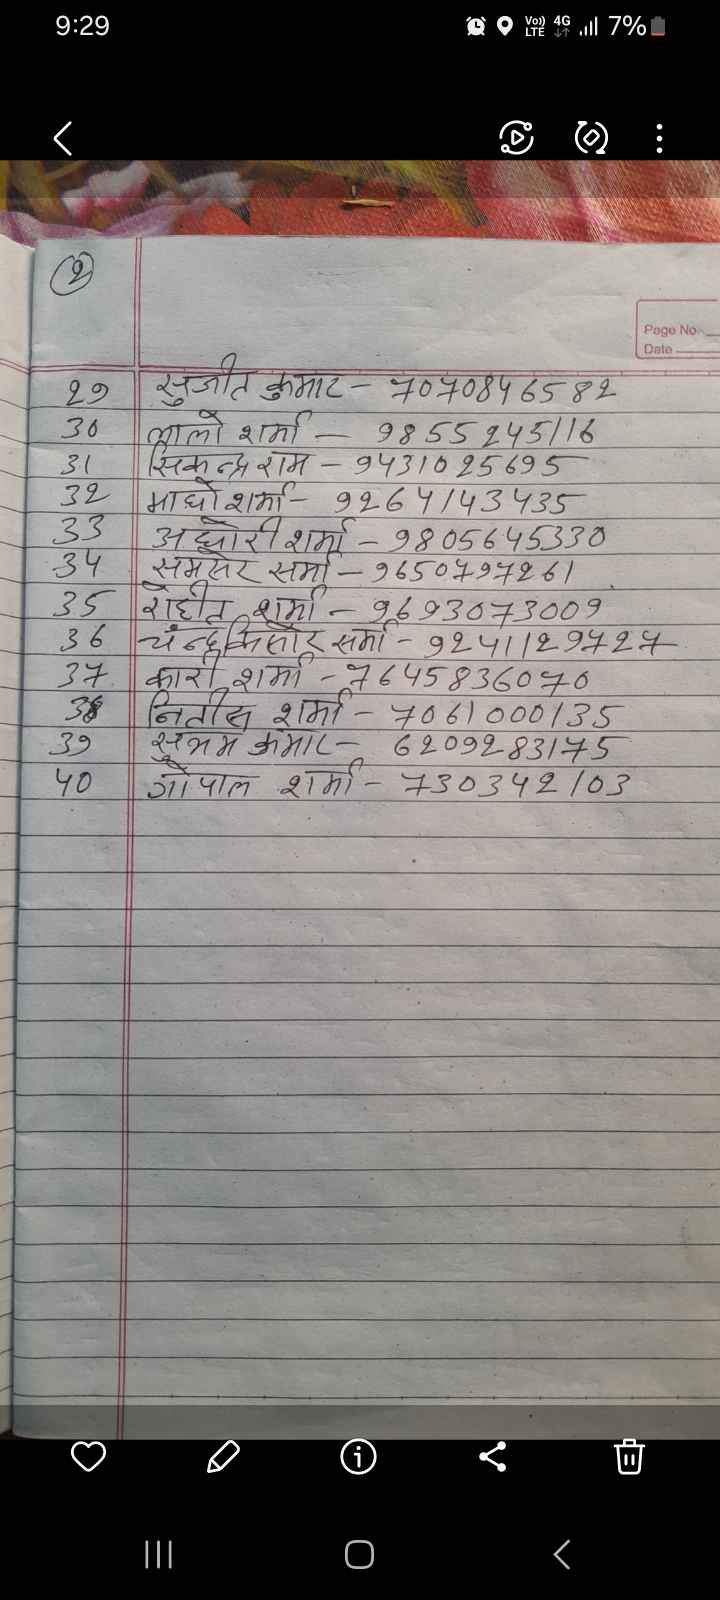 9:29 Vo)) LTE 4G 7%
२
Page No.
Date
29 सुजीत कुमार - 7070846582
30 लालो शर्मा - 9855245116
31 सिकन्द्र राम - 9431025695
32 माधो शर्मा - 9264143435
33 अघोरी शर्मा - 9805645330
34 समसेर सर्मा - 9650797261
35 रोहीत शर्मा - 9693073009
36 चन्द्रकिसोर सर्मा - 9241129727
37 कारी शर्मा - 7645836070
38 नितीस शर्मा - 7061000135
39 सुभम कुमार - 6209283175
40 गोपाल शर्मा - 730342103